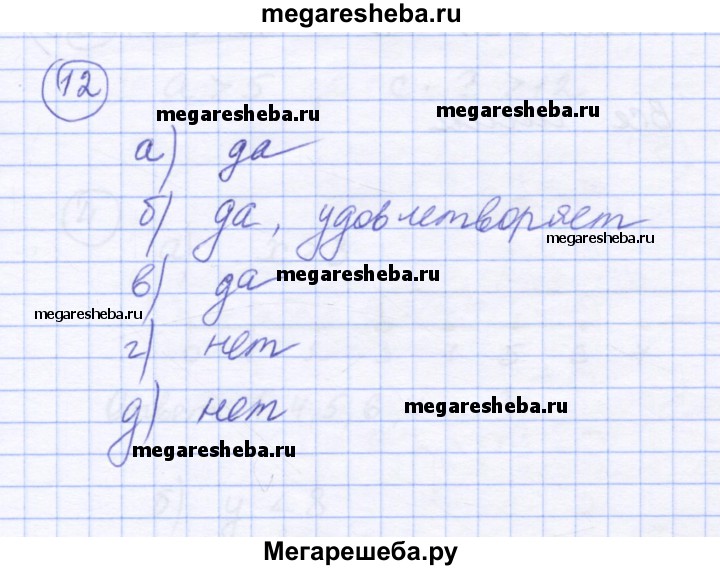 megaresheba.ru
12
megaresheba.ru
megaresheba.ru
а) да
б) да, удовлетворяет
megaresheba.ru
в) да
megaresheba.ru
megaresheba.ru
г) нет
д) нет
megaresheba.ru
megaresheba.ru
Мегарешеба.ру